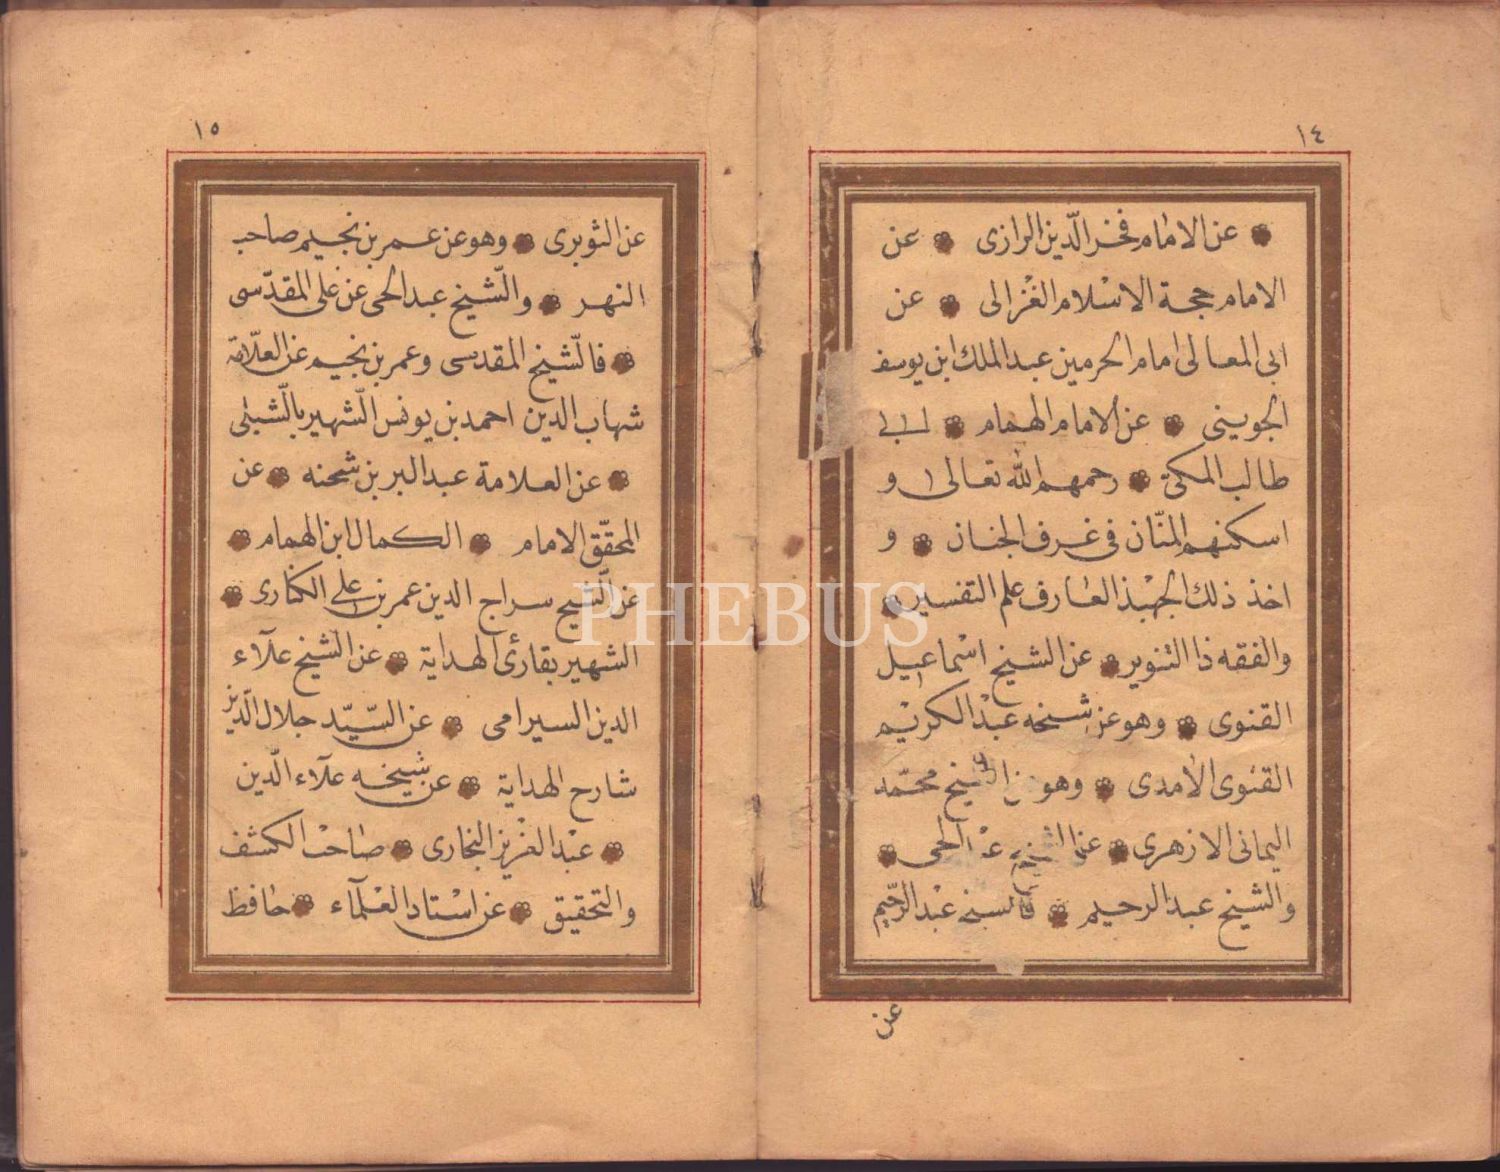 ١٤
عن الامام فخر الدّين الرازى عن
الامام حجة الاسلام الغزالى عن
ابى المعالى امام الحرمين عبد الملك ابن يوسف
الجوينى عن الامام الهمام ابى
طالب المكى رحمهم الله تعالى و
اسكنهم المنّان فى غرف الجنان و
اخذ ذلك الجهبذ العارف علم التفسير
والفقه ذا التنوير عن الشيخ اسماعيل
القنوى وهو عن شيخه عبد الكريم
القنوى الآمدى وهو الشيخ محمّد
اليمانى الازهرى عن الشيخ عبد الحى
والشيخ عبد الرحيم عبد الرحيم
عن
١٥
عن الثوبرى وهو عن عمر بن نجيم صاحب
النهر والشّيخ عبد الحى عن على المقدّسى
فالشّيخ المقدسى وعمر بن نجيم عن العلّامة
شهاب الدين احمد بن يونس الشّهير بالشّبلى
عن العلامة عبد البر بن شحنه عن
المحقّق الامام الكمال ابن الهمام
عن الشّيخ سراج الدين عمر بن على الكنارى
الشهير بقارئ الهداية عن الشيخ علآء
الدين السيرامى عن السّيّد جلال الدّين
شارح الهداية عن شيخه علآء الدّين
عبد العزيز البخارى صاحب الكشف
والتحقيق عن استاد العلمآء حافظ
PHEBUS